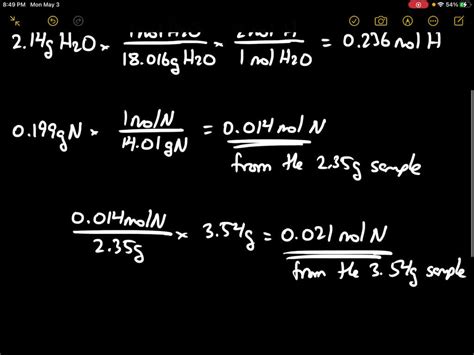 8:49 PM Mon May 3
54%
2.14g H2O × 1 mol H2O / 18.016g H2O × 2 mol H / 1 mol H2O = 0.236 mol H
0.199gN × 1 molN / 14.01gN = 0.014 mol N
from the 2.35g sample
0.014molN / 2.35g × 3.54g = 0.021 mol N
from the 3.54g sample